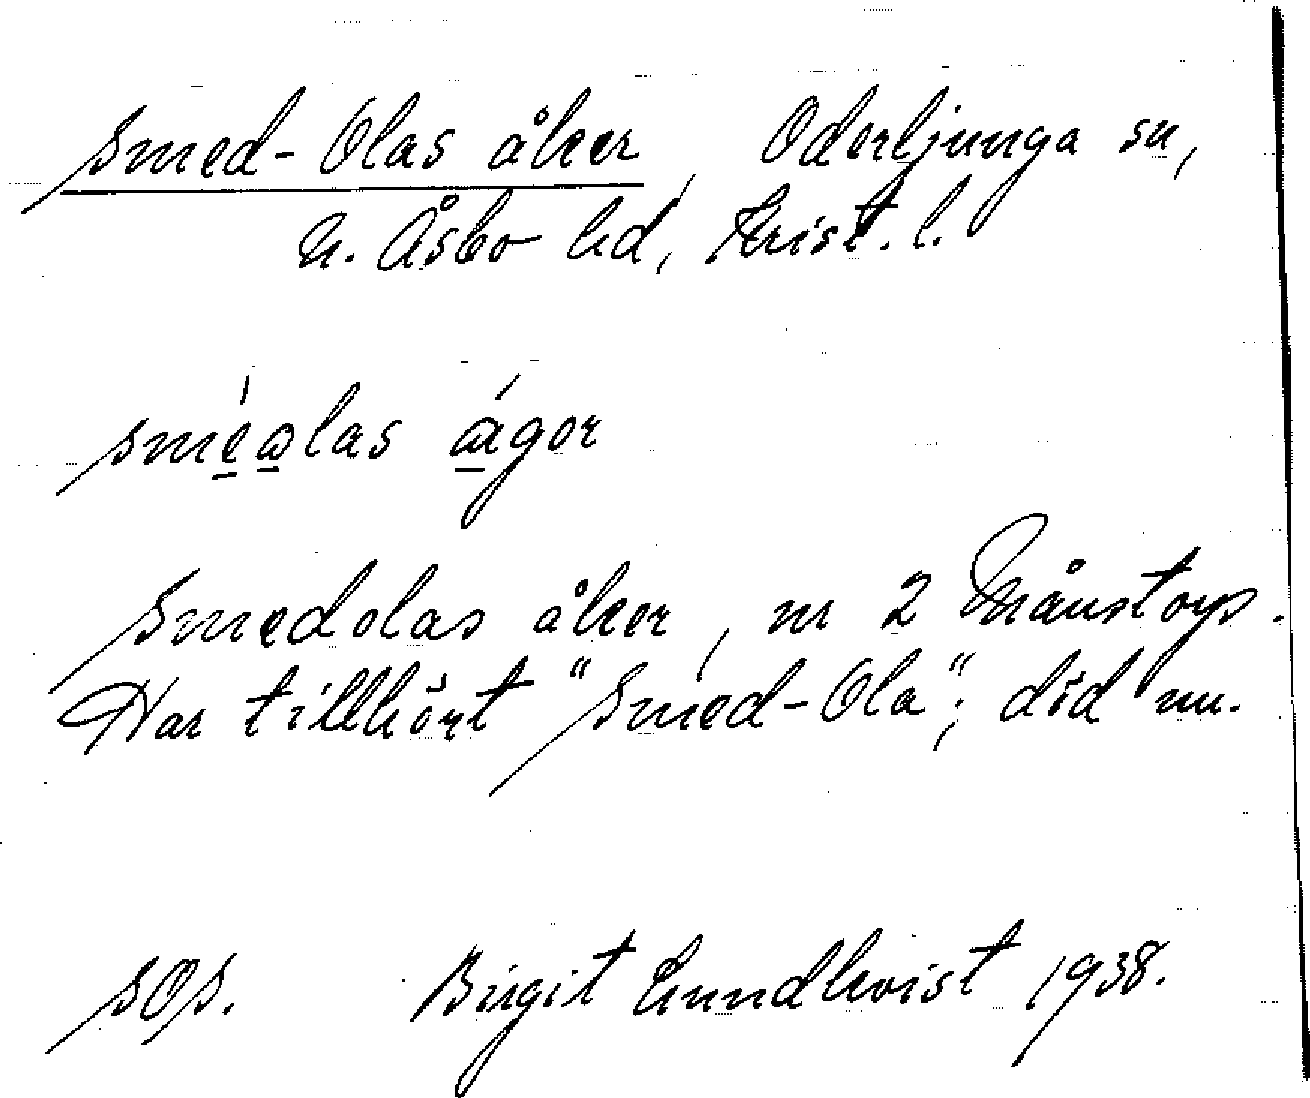 Smed-Olas åker, Oderljunga sn,
N. Åsbo hd, Krist. l.
sméo̱las ǽgor
Smedolas åker, nr 2 Månstorp.
Har tillhört "Smed-Ola"; död nu.
sOp. Birgit Lundkvist 1938.